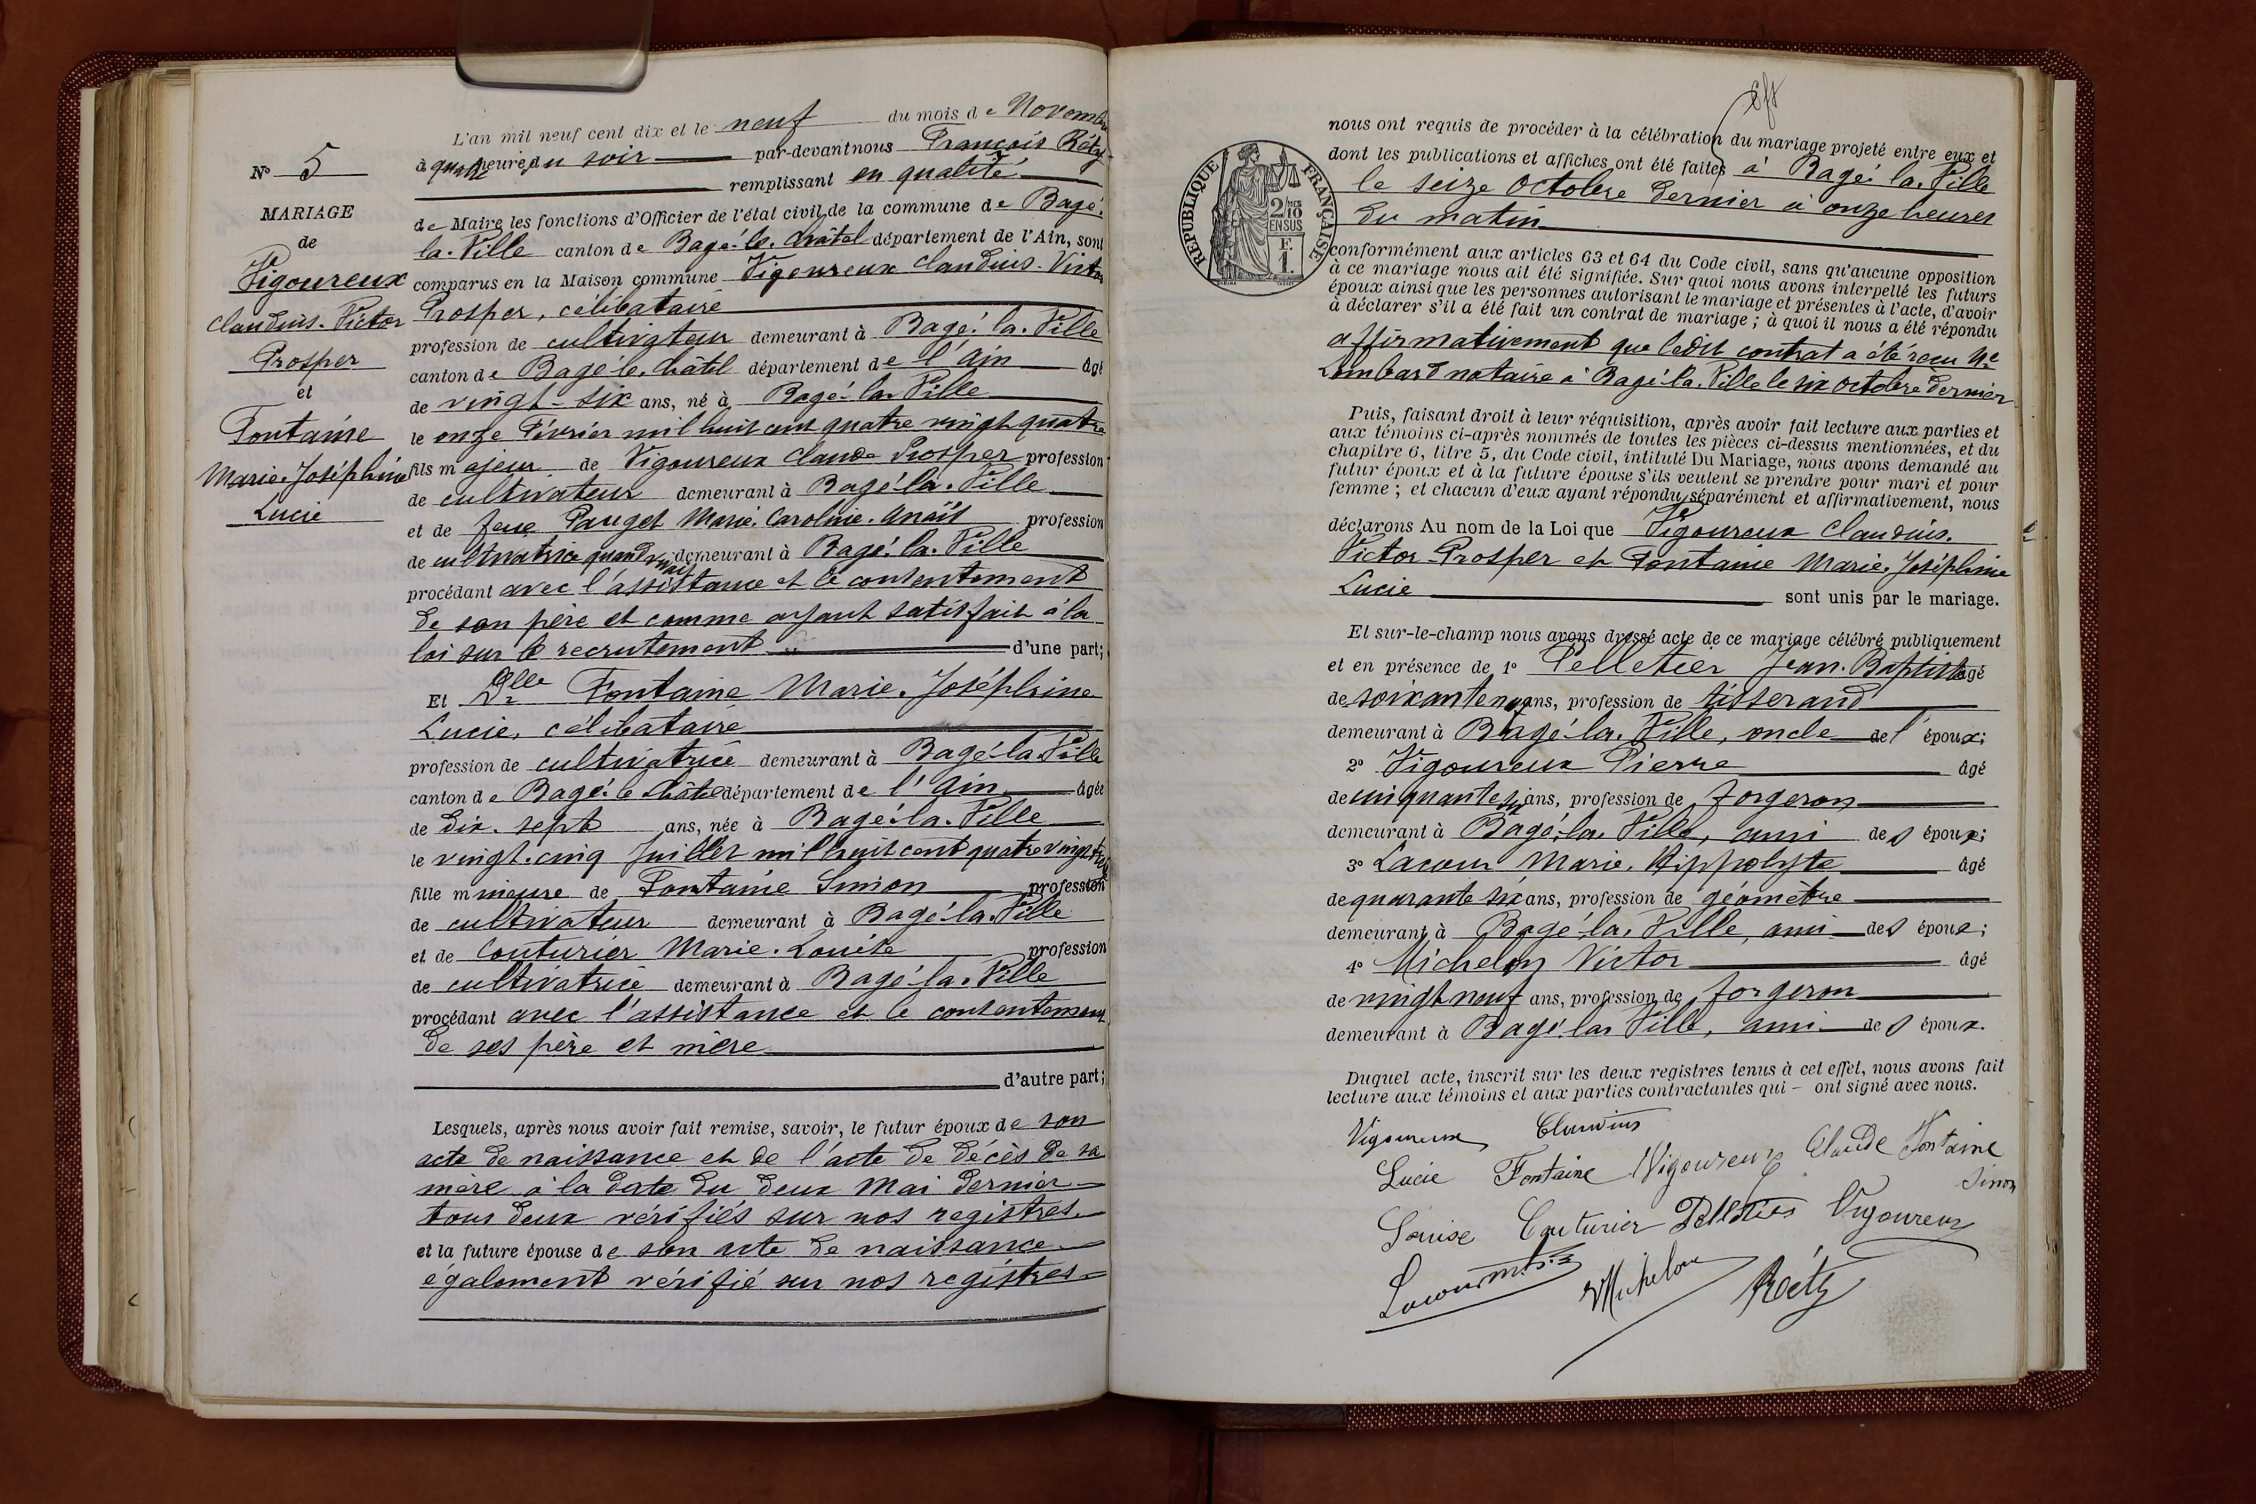 N° 5
MARIAGE
de
Vigoureux
Claudius. Victor
Prosper
et
Fontaine
Marie. Joséphine
Lucie
L'an mil neuf cent dix et le neuf du mois de Novembre
à quatre heures du soir par-devant nous François Réty
remplissant en qualité
de Maire les fonctions d'Officier de l'état civil de la commune de Bagé.
la. Ville canton de Bagé. le. Châtel département de l'Ain, sont
comparus en la Maison commune Vigoureux Claudius. Victor
Prosper, célibataire
profession de cultivateur demeurant à Bagé. la. Ville
canton de Bagé le. Châtel département de l'Ain âgé
de vingt-six ans, né à Bagé-la. Ville
le onze Février mil huit cent quatre vingt quatre
fils majeur de Vigoureux Claude Prosper profession
de cultivateur demeurant à Bagé-la. Ville
et de feue Pauget Marie. Caroline. Anaïs profession
de cultivatrice quand vivait demeurant à Bagé. la. Ville
procédant avec l'assistance et le consentement
de son père et comme ayant satisfait à la
loi sur le recrutement d'une part;
Et Dlle Fontaine Marie. Joséphine
Lucie, célibataire
profession de cultivatrice demeurant à Bagé-la. Ville
canton de Bagé. le Châtel département de l'Ain âgée
de dix. sept ans, née à Bagé. la. Ville
le vingt. cinq Juillet mil huit cent quatre vingt treize
fille mineure de Fontaine Simon profession
de cultivateur demeurant à Bagé-la. Ville
et de Couturier Marie. Louise profession
de cultivatrice demeurant à Bagé-la. Ville
procédant avec l'assistance et le consentement
de ses père et mère
d'autre part;
Lesquels, après nous avoir fait remise, savoir, le futur époux de son
acte de naissance et de l'acte de décès de sa
mère à la date du deux Mai dernier
tous deux vérifiés sur nos registres.
et la future épouse de son acte de naissance
également vérifié sur nos registres
RÉPUBLIQUE FRANÇAISE
2/10 EN SUS
F.
1.
nous ont requis de procéder à la célébration du mariage projeté entre eux et
dont les publications et affiches ont été faites à Bagé. la. Ville
le seize Octobre dernier à onze heures
du matin
conformément aux articles 63 et 64 du Code civil, sans qu'aucune opposition
à ce mariage nous ait été signifiée. Sur quoi nous avons interpellé les futurs
époux ainsi que les personnes autorisant le mariage et présentes à l'acte, d'avoir
à déclarer s'il a été fait un contrat de mariage; à quoi il nous a été répondu
affirmativement que ledit contrat a été reçu Me
Lombard notaire à Bagé-la. Ville le six octobre dernier
Puis, faisant droit à leur réquisition, après avoir fait lecture aux parties et
aux témoins ci-après nommés de toutes les pièces ci-dessus mentionnées, et du
chapitre 6, titre 5, du Code civil, intitulé Du Mariage, nous avons demandé au
futur époux et à la future épouse s'ils veulent se prendre pour mari et pour
femme; et chacun d'eux ayant répondu séparément et affirmativement, nous
déclarons Au nom de la Loi que Vigoureux Claudius.
Victor-Prosper et Fontaine Marie. Joséphine
Lucie sont unis par le mariage.
Et sur-le-champ nous avons dressé acte de ce mariage célébré publiquement
et en présence de 1° Pelletier Jean. Baptiste âgé
de soixante neuf ans, profession de tisserand
demeurant à Bagé-la. Ville, oncle de l'époux;
2° Vigoureux Pierre âgé
de cinquante six ans, profession de forgeron
demeurant à Bagé-la. Ville, ami des époux;
3° Lacour Marie. Hippolyte âgé
de quarante six ans, profession de géomètre
demeurant à Bagé-la. Ville, ami des époux;
4° Michelon Victor âgé
de vingt neuf ans, profession de forgeron
demeurant à Bagé. la. Ville, ami des époux.
Duquel acte, inscrit sur les deux registres tenus à cet effet, nous avons fait
lecture aux témoins et aux parties contractantes qui - ont signé avec nous.
Vigoureux Claudius
Lucie Fontaine Vigoureux Claude Fontaine
Simon
Louise Couturier Pelletier Vigoureux
Lacour Michelon Réty